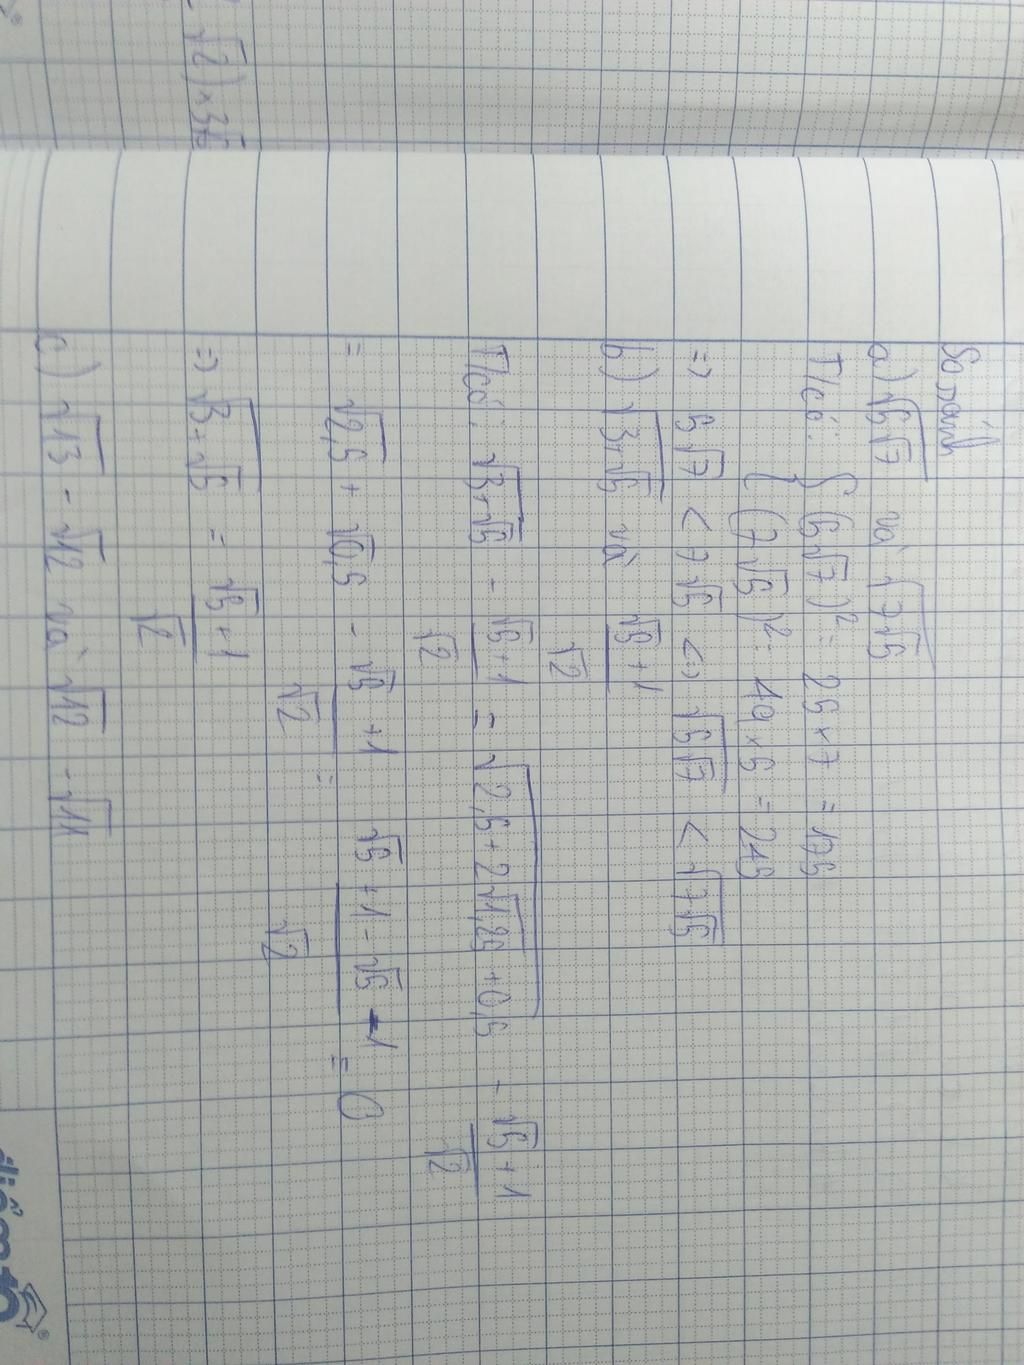 √2) × 3√6
So sánh
a) √(5√7) và √(7√5)
T/có: { (5√7)² = 25 × 7 = 175
{ (7√5)² = 49 × 5 = 245
=> 5√7 < 7√5 <=> √(5√7) < √(7√5)
b) √(3+√5) và (√5 + 1)/√2
T/có: √(3+√5) - (√5 + 1)/√2 = √(2,5 + 2√1,25 + 0,5) - (√5 + 1)/√2
= √2,5 + √0,5 - (√5 + 1)/√2 = (√5 + 1 - √5 - 1)/√2 = 0
=> √(3+√5) = (√5 + 1)/√2
c) √13 - √12 và √12 - √11